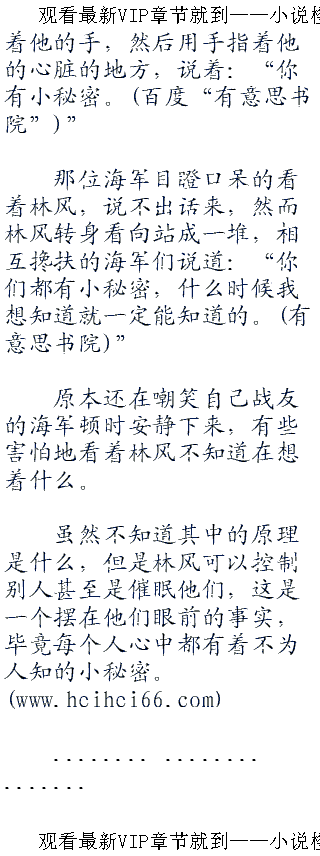 观看最新VIP章节就到——小说检
着他的手，然后用手指着他
的心脏的地方，说着：“你
有小秘密。(百度“有意思书
院”)”
那位海军目瞪口呆的看
着林风，说不出话来，然而
林风转身看向站成一堆，相
互搀扶的海军们说道：“你
们都有小秘密，什么时候我
想知道就一定能知道的。(有
意思书院)”
原本还在嘲笑自己战友
的海军顿时安静下来，有些
害怕地看着林风不知道在想
着什么。
虽然不知道其中的原理
是什么，但是林风可以控制
别人甚至是催眠他们，这是
一个摆在他们眼前的事实，
毕竟每个人心中都有着不为
人知的小秘密。
(www.hcihci66.com)
........ ........
.......
观看最新VIP章节就到——小说检